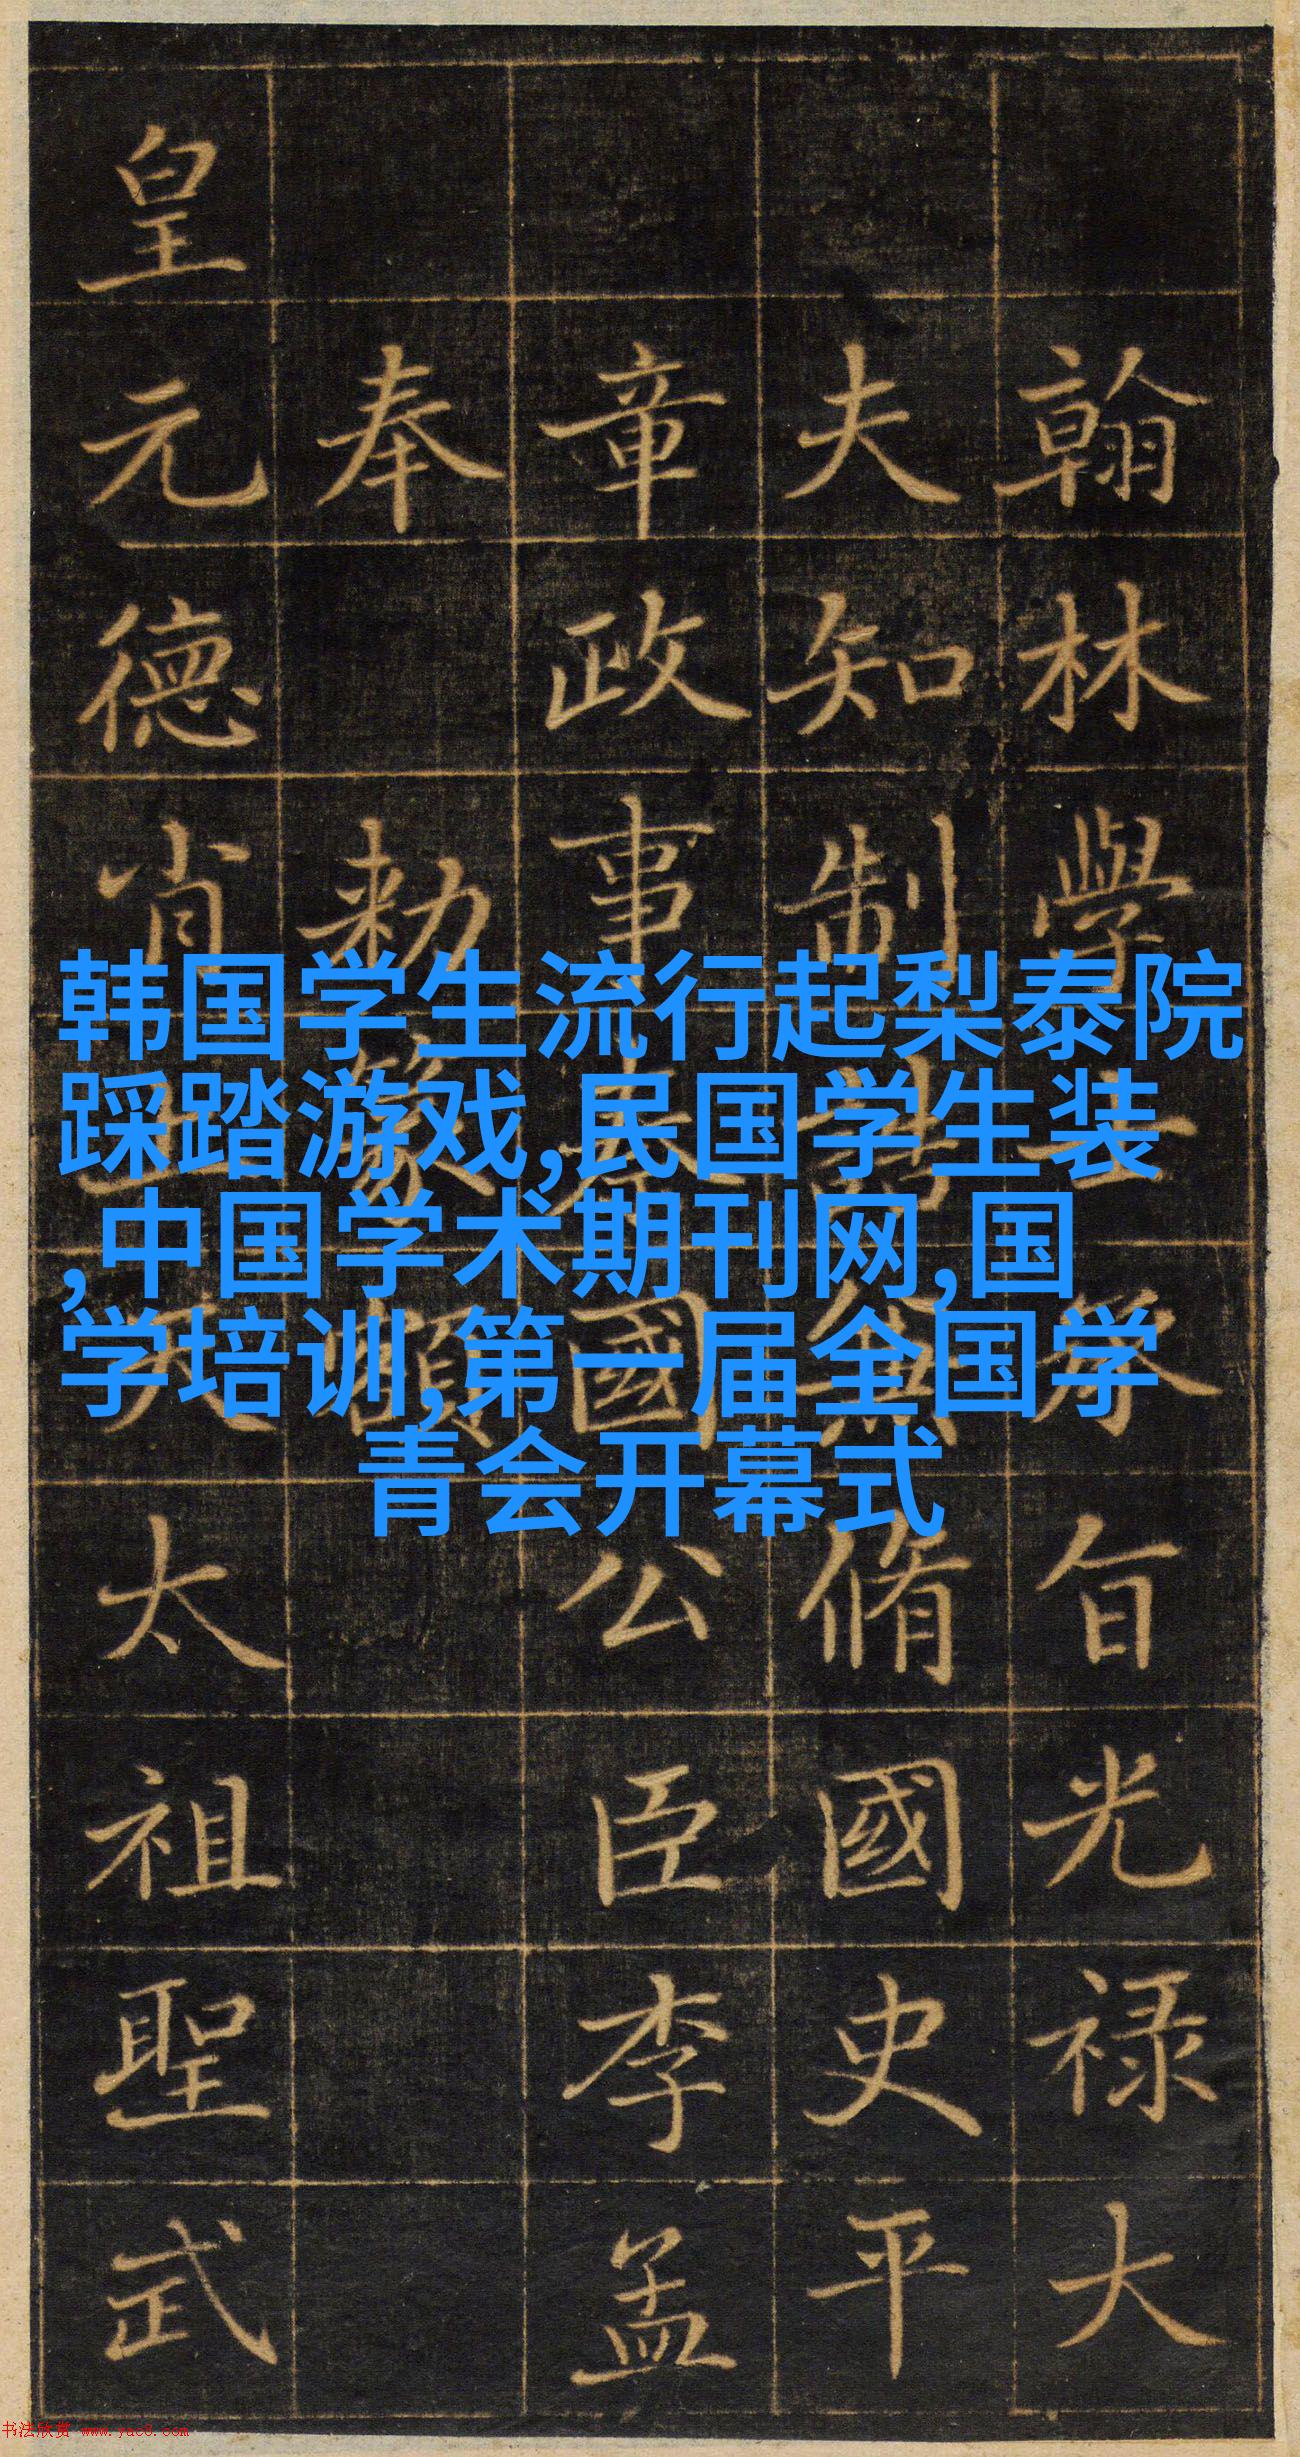 翰林學士承旨光禄大
夫知制誥兼脩國史平
章政事秦國公臣李孟
奉 勑篆額
皇元德肖上天太祖聖武
韩国学生流行起梨泰院
踩踏游戏,民国学生装
,中国学术期刊网,国
学培训,第一届全国学
青会开幕式
书法欣赏 www.yac8.com